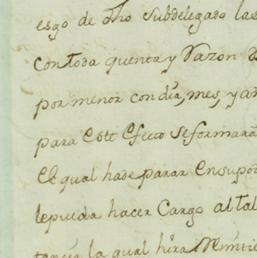 esgo de dho Subdelegado las
con toda quenta y Razon
por menor con dia, mes, y añ
para este efecto se formará
el qual hade parar en supo
le pueda hacer Cargo al tal
tancia la qual hira